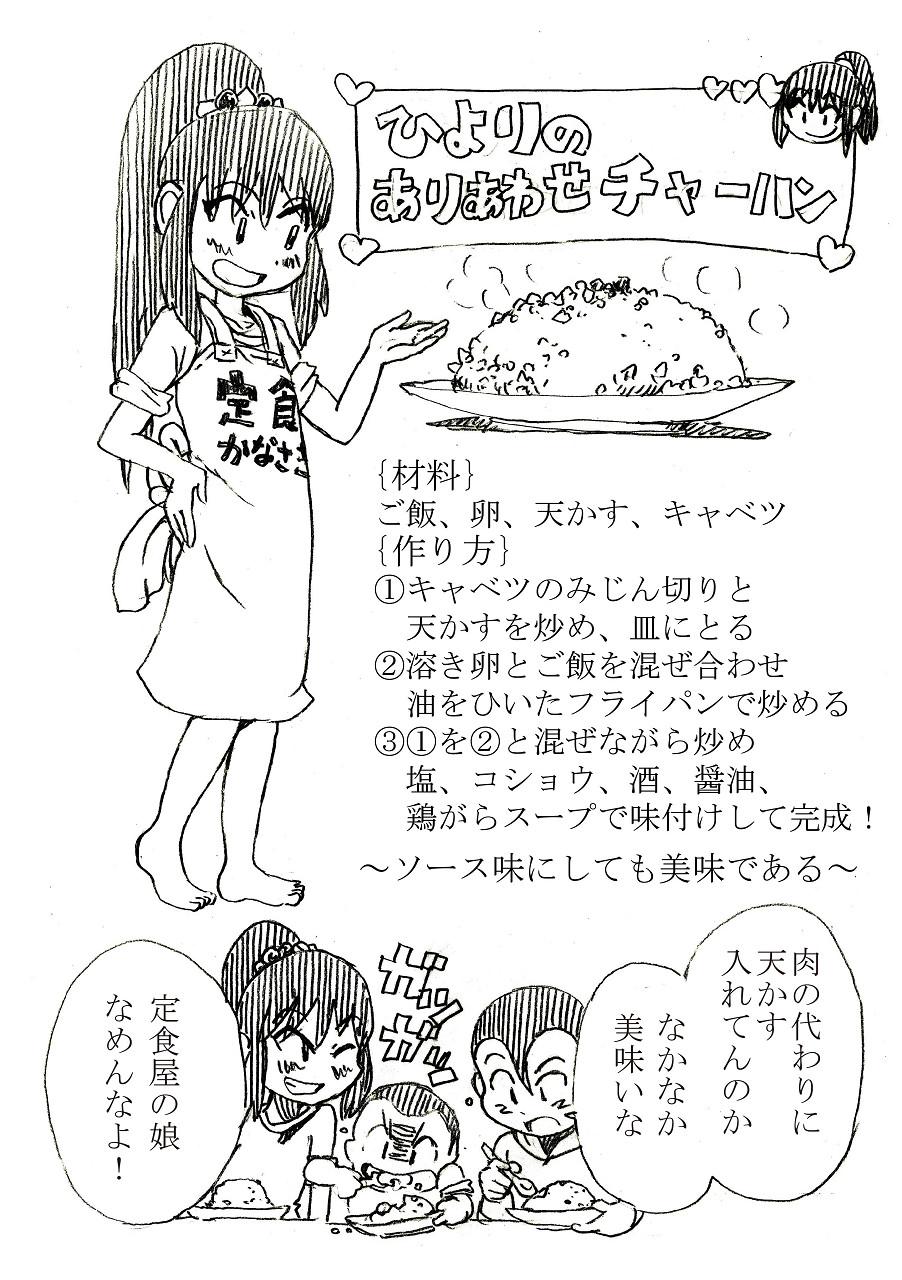 ひよりの
ありあわせチャーハン
定食
かなさき
{材料}
ご飯、卵、天かす、キャベツ
{作り方}
①キャベツのみじん切りと
天かすを炒め、皿にとる
②溶き卵とご飯を混ぜ合わせ
油をひいたフライパンで炒める
③①を②と混ぜながら炒め
塩、コショウ、酒、醤油、
鶏がらスープで味付けして完成！
～ソース味にしても美味である～
肉の代わりに
天かす
入れてんのか
なかなか
美味いな
ガツ
ガツ
定食屋の娘
なめんなよ！